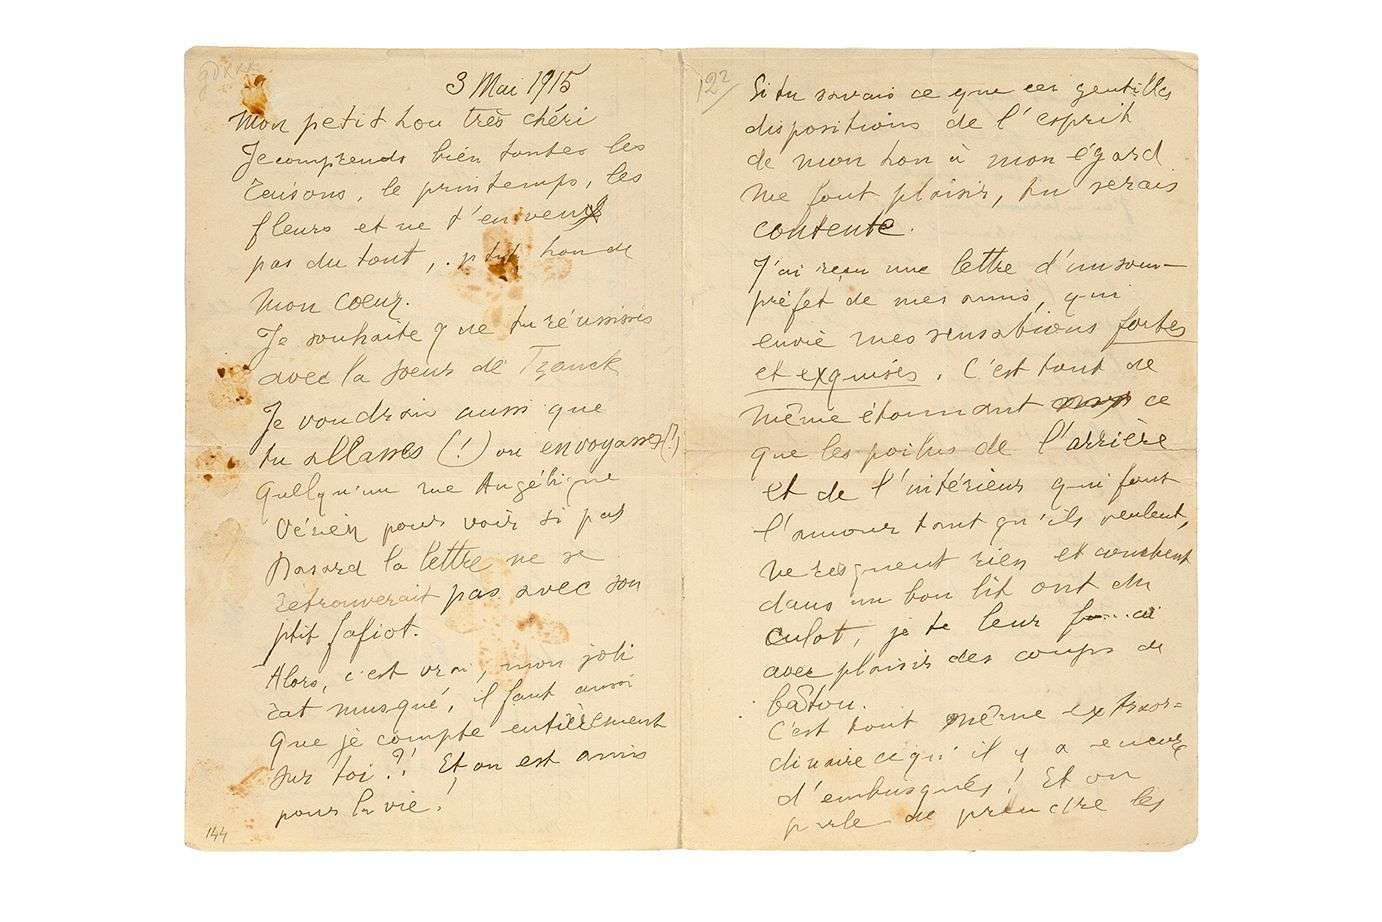 3 Mai 1915
Mon petit Lou très chéri
Je comprends bien toutes les
raisons, le printemps, les
fleurs et ne t'en veux
pas du tout, ptit Lou de
mon cœur.
Je souhaite que tu réussisses
avec la sœur de Tzanck
Je voudrais aussi que
tu allasses (!) ou envoyasses (!)
quelqu'un rue Angélique
Vérien pour voir si pas
hasard la lettre ne se
retrouverait pas avec son
ptit fafiot.
Alors, c'est vrai, mon joli
rat musqué, il faut aussi
que je compte entièrement
sur toi ?! Et on est amis
pour la vie !
144
122
Si tu savais ce que ces gentilles
dispositions de l'esprit
de mon Lou à mon égard
me font plaisir, tu serais
contente.
J'ai reçu une lettre d'un sous-
préfet de mes amis, qui
envie mes sensations fortes
et exquises. C'est tout de
même étonnant ce
que les poilus de l'arrière
et de l'intérieur qui font
l'amour tant qu'ils veulent,
ne risquent rien et couchent
dans un bon lit ont du
culot, je te leur
avec plaisir des coups de
bâton.
C'est tout même extraor-
dinaire ce qu'il y a encore
d'embusqués ! Et on
parle de prendre les